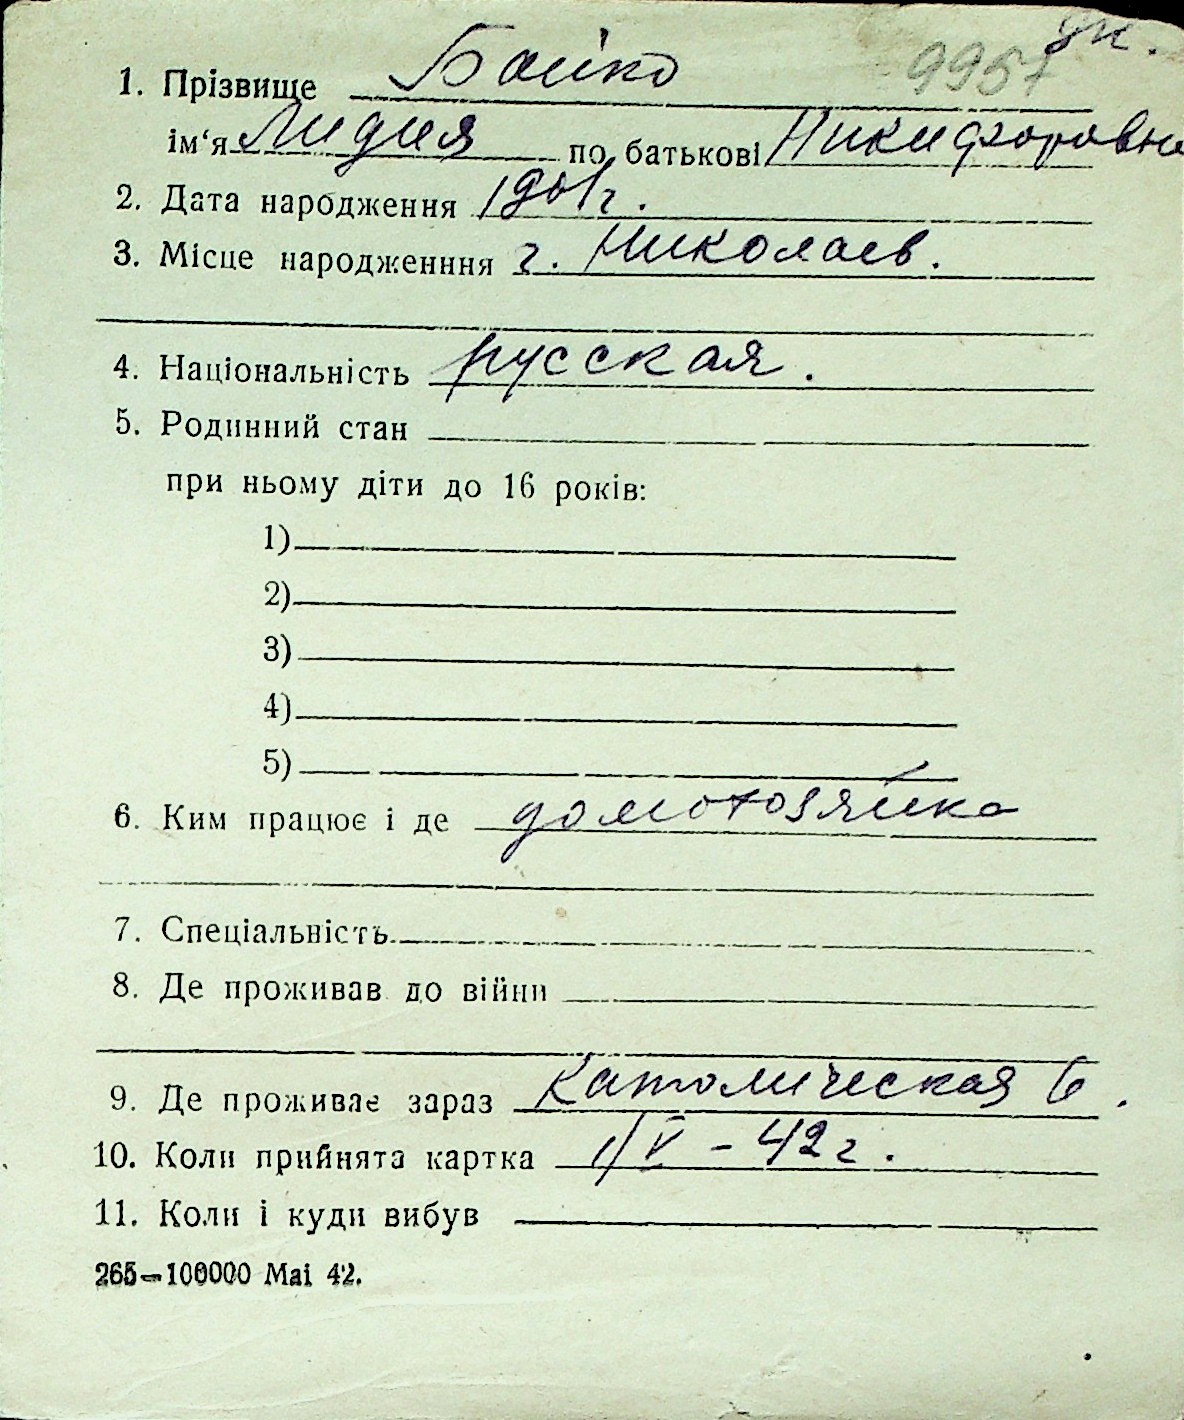 ж.
9957
1. Прізвище Бойко
ім‘я Лидия по батькові Никифоровна
2. Дата народження 1901г.
3. Місце народженння г. Николаев.
4. Національність русская.
5. Родинний стан
при ньому діти до 16 років:
1)
2)
3)
4)
5)
6. Ким працює і де домохозяйка
7. Спеціальність
8. Де проживав до війни
9. Де проживає зараз Католическая 6.
10. Коли прийнята картка 1/V - 42г.
11. Коли і куди вибув
265—100000 Mai 42.